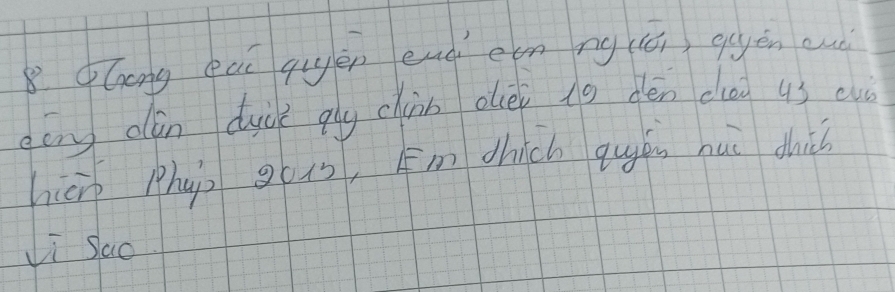 8. Trong các quyền của con người, quyền của
công dân được quy định điều 19 đến điều 43 của
hiến Pháp 2013, Em thích quyền nào thích
Vì sao